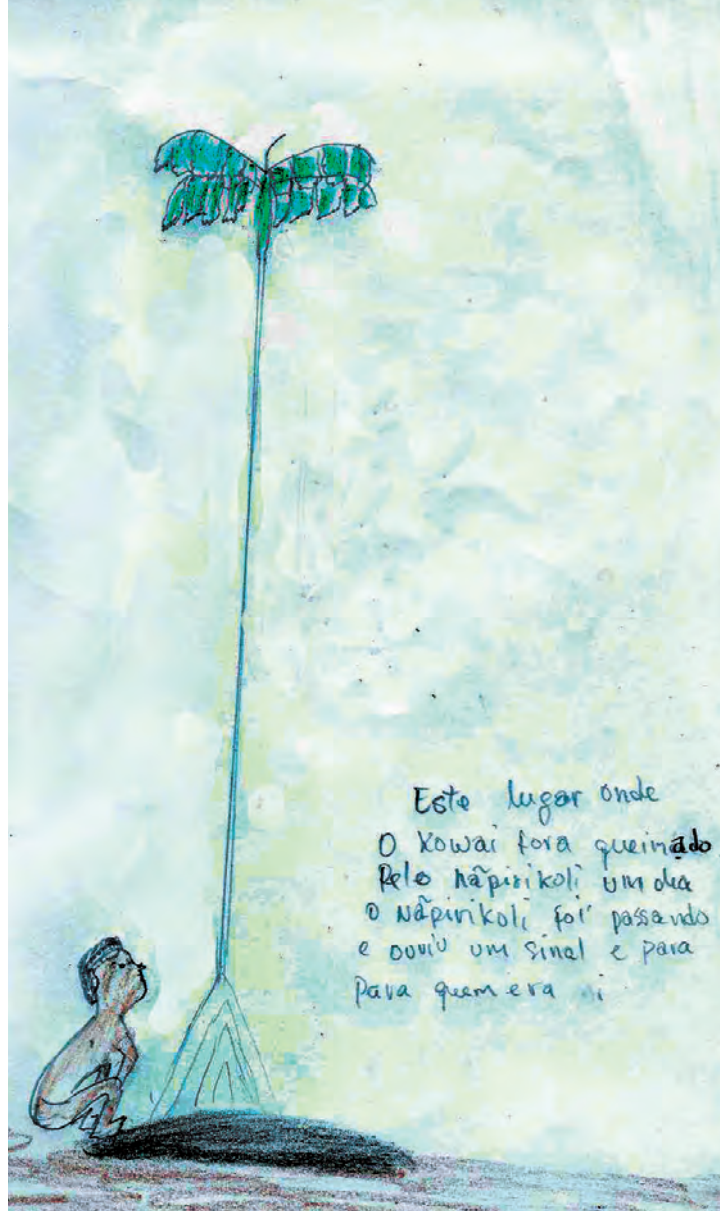 Este lugar onde
O Kowai fora queimado
Pelo nãpirikoli um dia
O Nãpirikoli foi passando
e ouviu um sinal e para
Para quem era